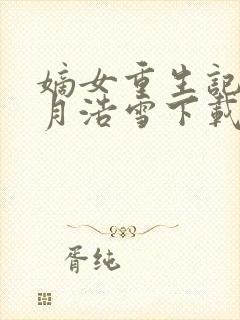 嫡女重生記
月浩雪下載
胥纯